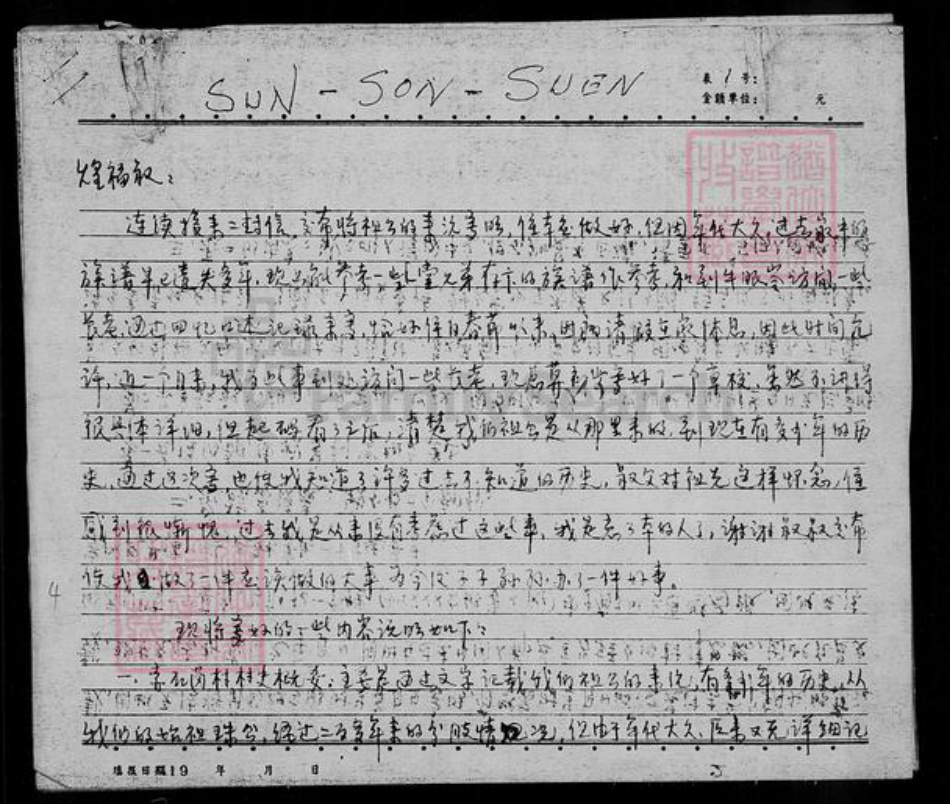 SUN - SON - SUEN
表 1 号:
金额单位: 元
煌福叔:
连续接来二封信,交布将祖公的事况写明,侄本应做好,但因年代大久,过去家中的
族谱早已遗失多年,现只能参考一些堂兄弟存下的族谱作参考,和到年眼访问一些
长老,通过回忆口述记录来写,恰好侄自春节以来,因病请假在家休息,因此时间允
许,近一个月来,我为此事到处访问一些长老,现写好了一个草稿,虽然不讲得
很具体详细,但起码看了之后,清楚我们祖公是从那里来的,到现在有多少年的历
史,通过这次写也使我知道了许多过去不知道的历史,叔父对祖先这样怀念,侄
感到很惭愧,过去我是从来没有考虑过这些事,我是忘了本的人了,谢谢叔叔交布
给我做了一件应该做的大事 为今后子子孙孙办了一件好事。
现将写好的一些内容说明如下:
一、 主要是通过文字记载我们祖公的事 有多少年的历史,从
我们的始祖珠公,经过二百多年来的分肢情况,但由于年代大久,后来又无详细记
填报日期19 年 月 日
4